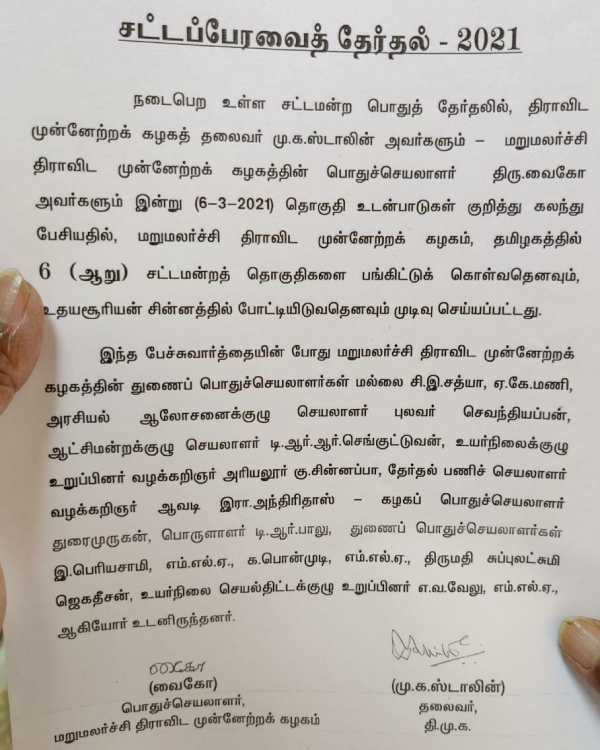 சட்டப்பேரவைத் தேர்தல் - 2021
நடைபெற உள்ள சட்டமன்ற பொதுத் தேர்தலில், திராவிட
முன்னேற்றக் கழகத் தலைவர் மு.க.ஸ்டாலின் அவர்களும் – மறுமலர்ச்சி
திராவிட முன்னேற்றக் கழகத்தின் பொதுச்செயலாளர் திரு.வைகோ
அவர்களும் இன்று (6-3-2021) தொகுதி உடன்பாடுகள் குறித்து கலந்து
பேசியதில், மறுமலர்ச்சி திராவிட முன்னேற்றக் கழகம், தமிழகத்தில்
6 (ஆறு) சட்டமன்றத் தொகுதிகளை பங்கிட்டுக் கொள்வதெனவும்,
உதயசூரியன் சின்னத்தில் போட்டியிடுவதெனவும் முடிவு செய்யப்பட்டது.
இந்த பேச்சுவார்த்தையின் போது மறுமலர்ச்சி திராவிட முன்னேற்றக்
கழகத்தின் துணைப் பொதுச்செயலாளர்கள் மல்லை சி.இ.சத்யா, ஏ.கே.மணி,
அரசியல் ஆலோசனைக்குழு செயலாளர் புலவர் செவந்தியப்பன்,
ஆட்சிமன்றக்குழு செயலாளர் டி.ஆர்.ஆர்.செங்குட்டுவன், உயர்நிலைக்குழு
உறுப்பினர் வழக்கறிஞர் அரியலூர் கு.சின்னப்பா, தேர்தல் பணிச் செயலாளர்
வழக்கறிஞர் ஆவடி இரா.அந்திரிதாஸ் – கழகப் பொதுச்செயலாளர்
துரைமுருகன், பொருளாளர் டி.ஆர்.பாலு, துணைப் பொதுச்செயலாளர்கள்
இ.பெரியசாமி, எம்.எல்.ஏ., க.பொன்முடி, எம்.எல்.ஏ., திருமதி சுப்புலட்சுமி
ஜெகதீசன், உயர்நிலை செயல்திட்டக்குழு உறுப்பினர் எ.வ.வேலு, எம்.எல்.ஏ.,
ஆகியோர் உடனிருந்தனர்.
வைகோ
(வைகோ) (மு.க.ஸ்டாலின்)
பொதுச்செயலாளர், தலைவர்,
மறுமலர்ச்சி திராவிட முன்னேற்றக் கழகம் தி.மு.க.